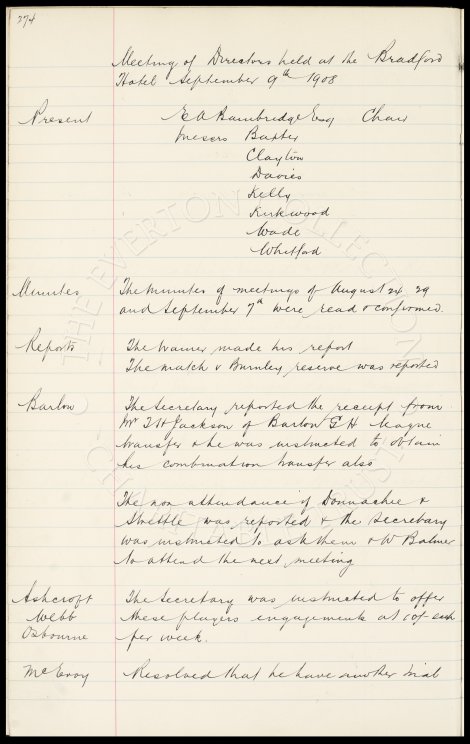 274
Meeting of Directors held at the Bradford
Hotel September 9th 1908
Present E A Bainbridge Esq Chair
Messrs Baxter
Clayton
Davies
Kelly
Kirkwood
Wade
Whitford
Minutes The Minutes of meetings of August 24 29
and September 7th were read & confirmed.
Reports The trainer made his report
The match v Burnley reserve was reported
Barlow The Secretary reported the receipt from
Mr T H Jackson of Barlow G H League
transfer & he was instructed to obtain
his combination transfer also
The non attendance of Donnachie &
was reported & the Secretary
was instructed to ask them & W Balmer
to attend the next meeting
Ashcroft The Secretary was instructed to offer
Webb these players engagements at 10/- each
Osbourne per week.
McEvoy Resolved that he have another trial
THE EVERTON COLLECTION